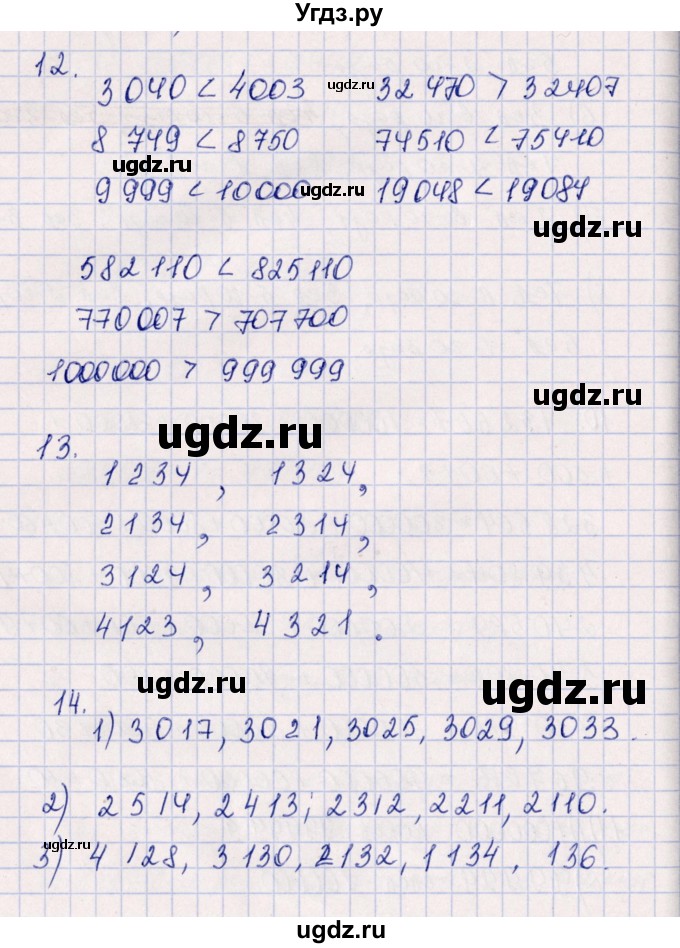 Угдз.ру
12.
3 040 < 4003 ugdz.ru 32 470 > 32407
8 749 < 8 750 74510 < 75410
ugdz.ru
9 999 < 10000 ugdz.ru 19048 < 19084
ugdz.ru
582 110 < 825110
770 007 > 707 700
1000 000 > 999 999
ugdz.ru
13. ugdz.ru
1 234, 1324,
2134, 2314,
3124, 3214,
4123, 4321.
ugdz.ru ugdz.ru
14.
1) 3 017, 3021, 3025, 3029, 3033.
2) 2 514, 2 413; 2312, 2211, 2110.
3) 4 128, 3 130, 2132, 1 134, 136.
ugdz.ru ugdz.ru ugdz.ru
ugdz.ru